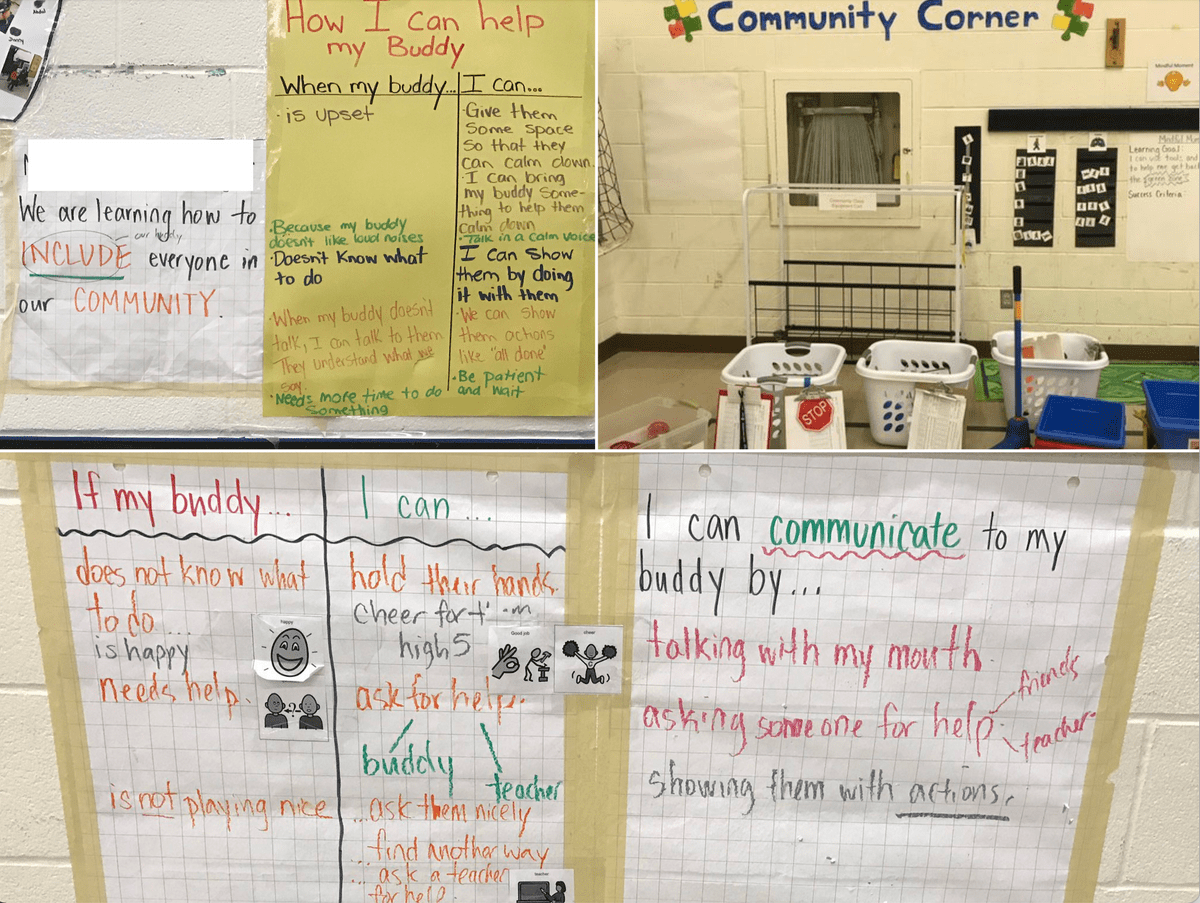 We are learning how to
our buddy
INCLUDE everyone in
our COMMUNITY.
How I can help
my Buddy
When my buddy...
· is upset
· Because my buddy
doesn't like loud noises
· Doesn't Know what
to do
· When my buddy doesn't
talk, I can talk to them
They understand what we
say.
· Needs more time to do
Something
I can...
· Give them
Some space
So that they
can calm down.
· I can bring
my buddy some-
thing to help them
calm down
· Talk in a calm voice
I can show
them by doing
it with them
· We can show
them actions
like "all done"
· Be patient
and wait
Community Corner
Mindful Moment
Learning Goal:
I can use tools and
to help me get back
Success Criteria
STOP
If my buddy...
does not know what
to do...
is happy
needs help.
is not playing nice
happy
I can...
hold their hands.
cheer for
high 5
Good job
cheer
ask for help.
buddy
teacher
...ask them nicely
...find another way
...ask a teacher
for help.
teacher
I can communicate to my
buddy by...
talking with my mouth
asking someone for help.
friends
teacher
showing them with actions.